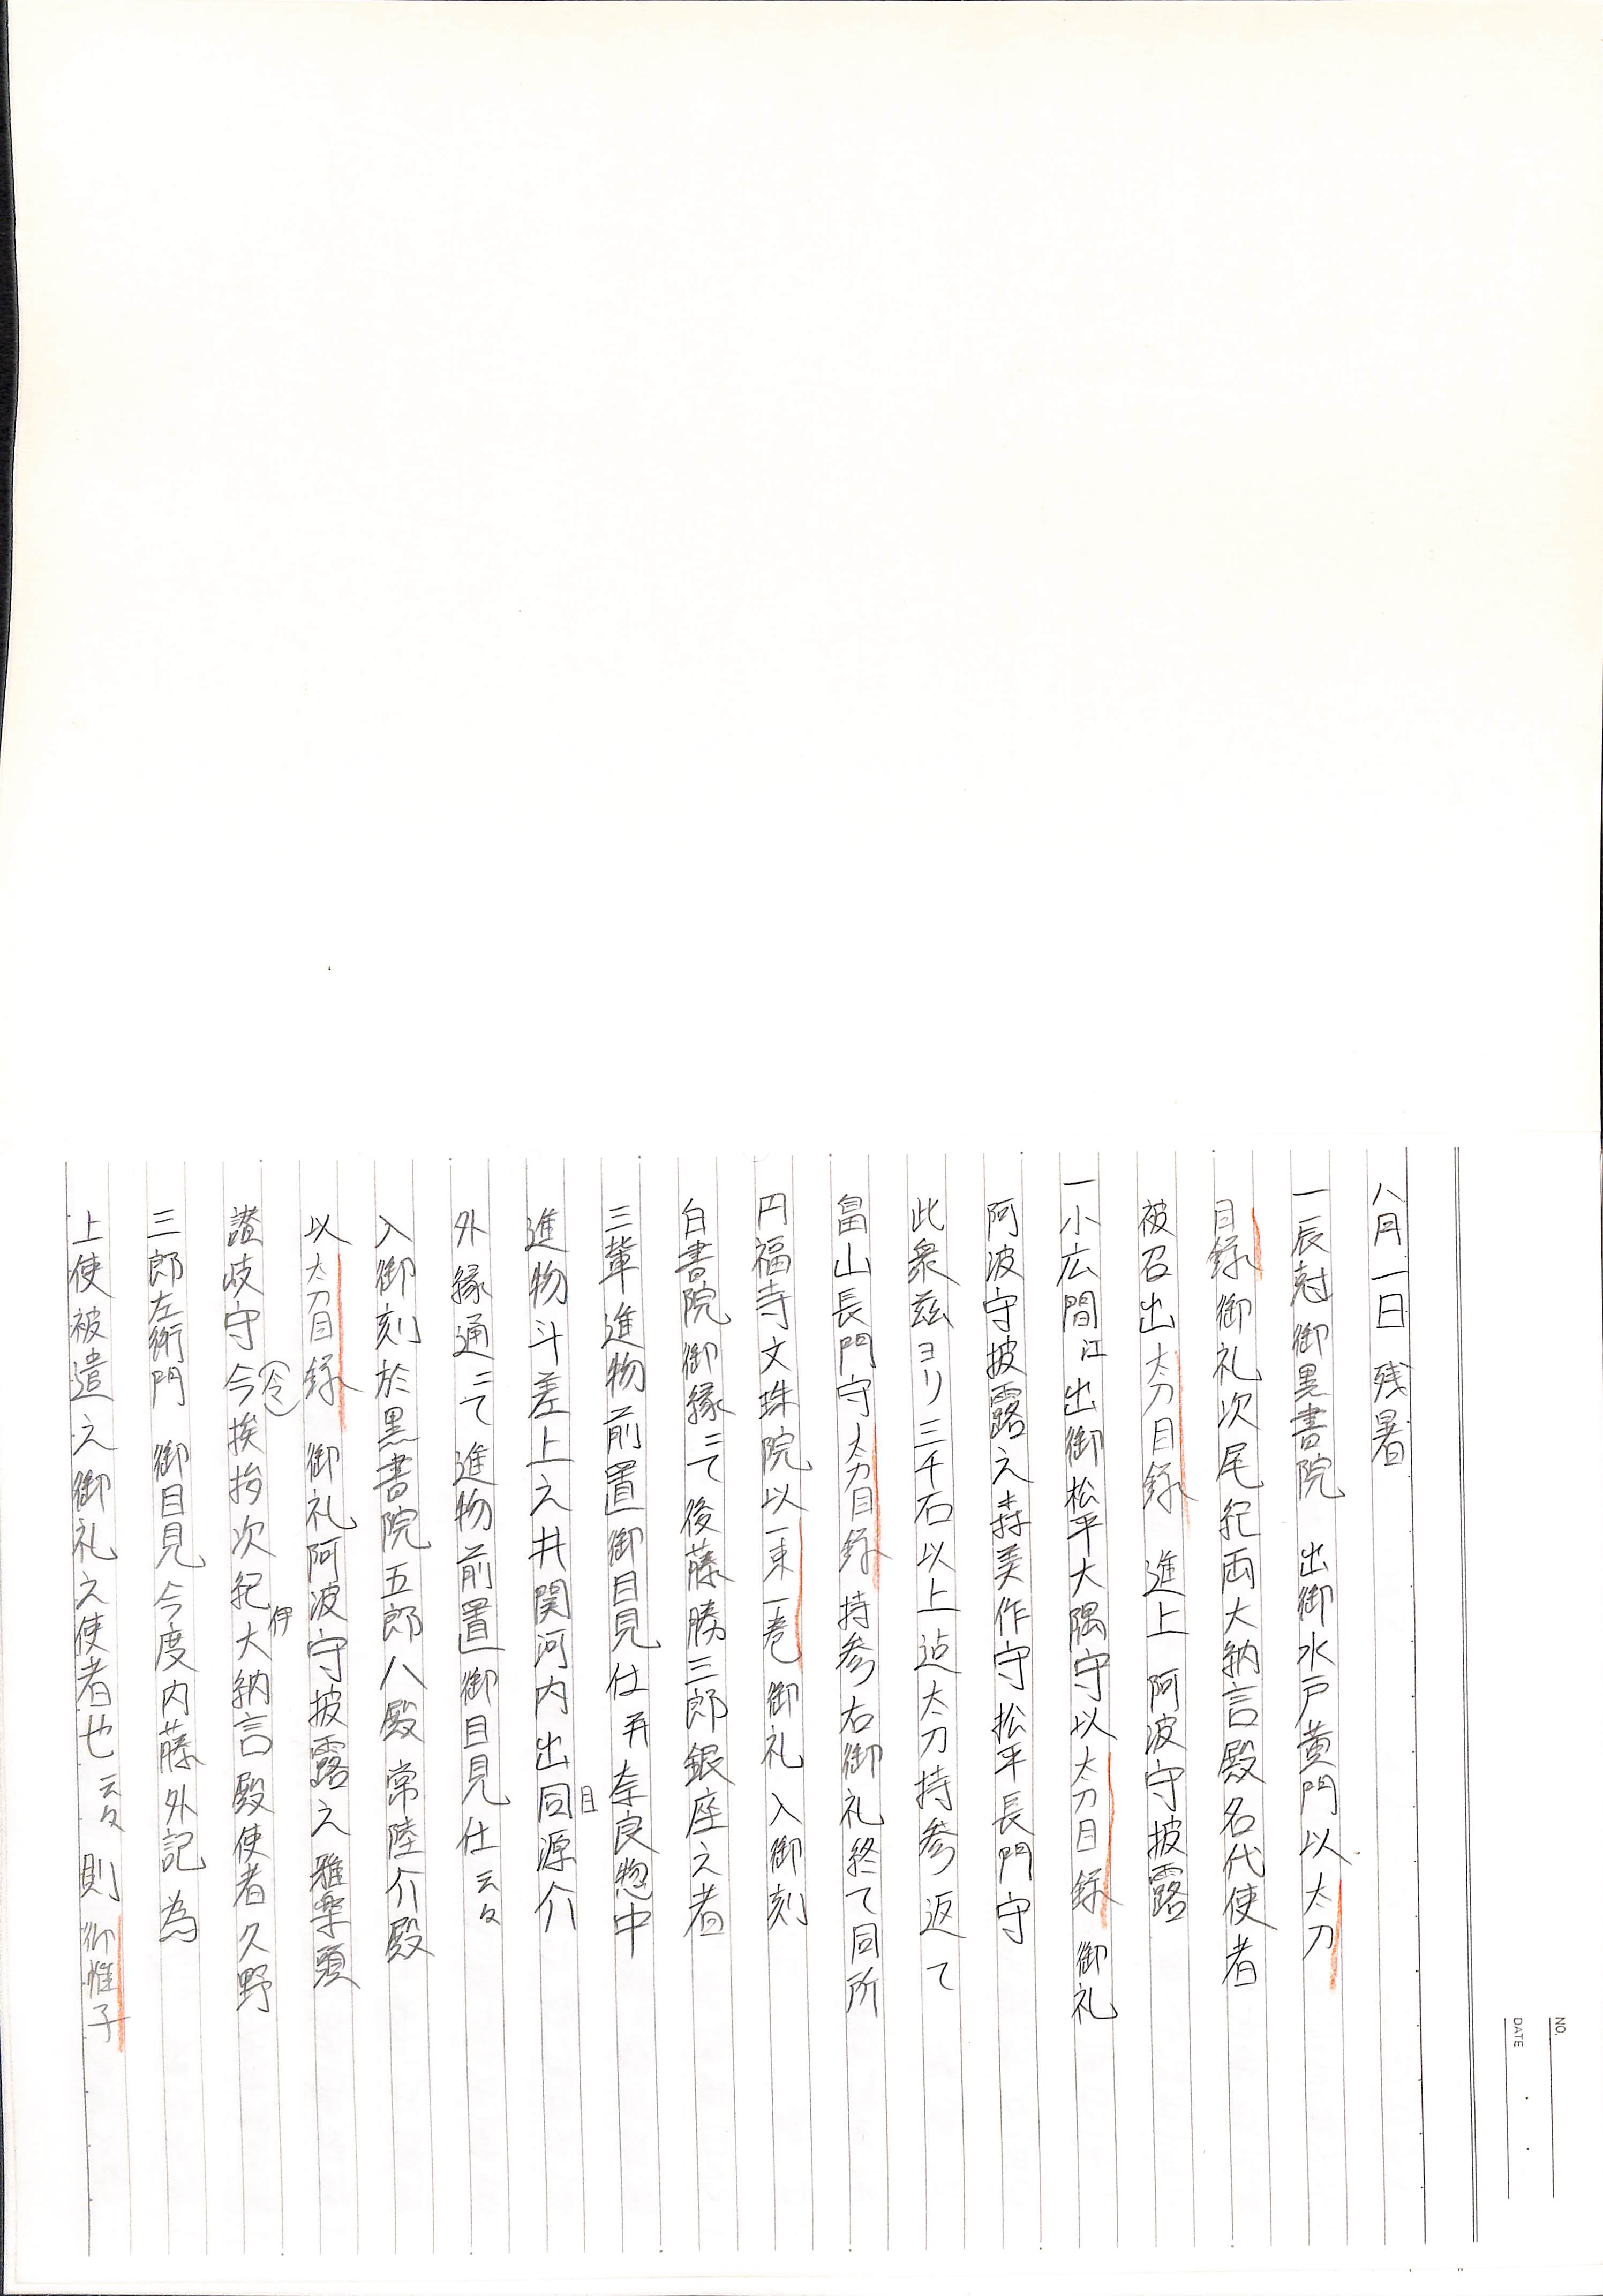 NO.
DATE
八月一日 残暑
一辰尅御黒書院 出御水戸黄門以太刀
目録御礼次尾紀両大納言殿名代使者
被召出太刀目録 進上 阿波守披露
一小広間江出御松平大隅守以太刀目録 御礼
阿波守披露之森美作守松平長門守
此衆茲ヨリ三千石以上迠太刀持参返て
畠山長門守太刀目録持参右御礼終て同所
円福寺文珠院以一束一巻御礼 入御刻
白書院御縁ニて後藤勝三郎銀座之者
三輩進物前置御目見仕并奈良惣中
進物斗差上之井関河内出目源介
外縁通ニて進物前置御目見仕云々
入御刻於黒書院五郎八殿常陸介殿
以太刀目録 御礼阿波守披露之雅楽頭
讃岐守今(令)挨拶次紀伊大納言殿使者久野
三郎左衛門 御目見今度内藤外記為
上使被遣之御礼之使者也云々 則御帷子